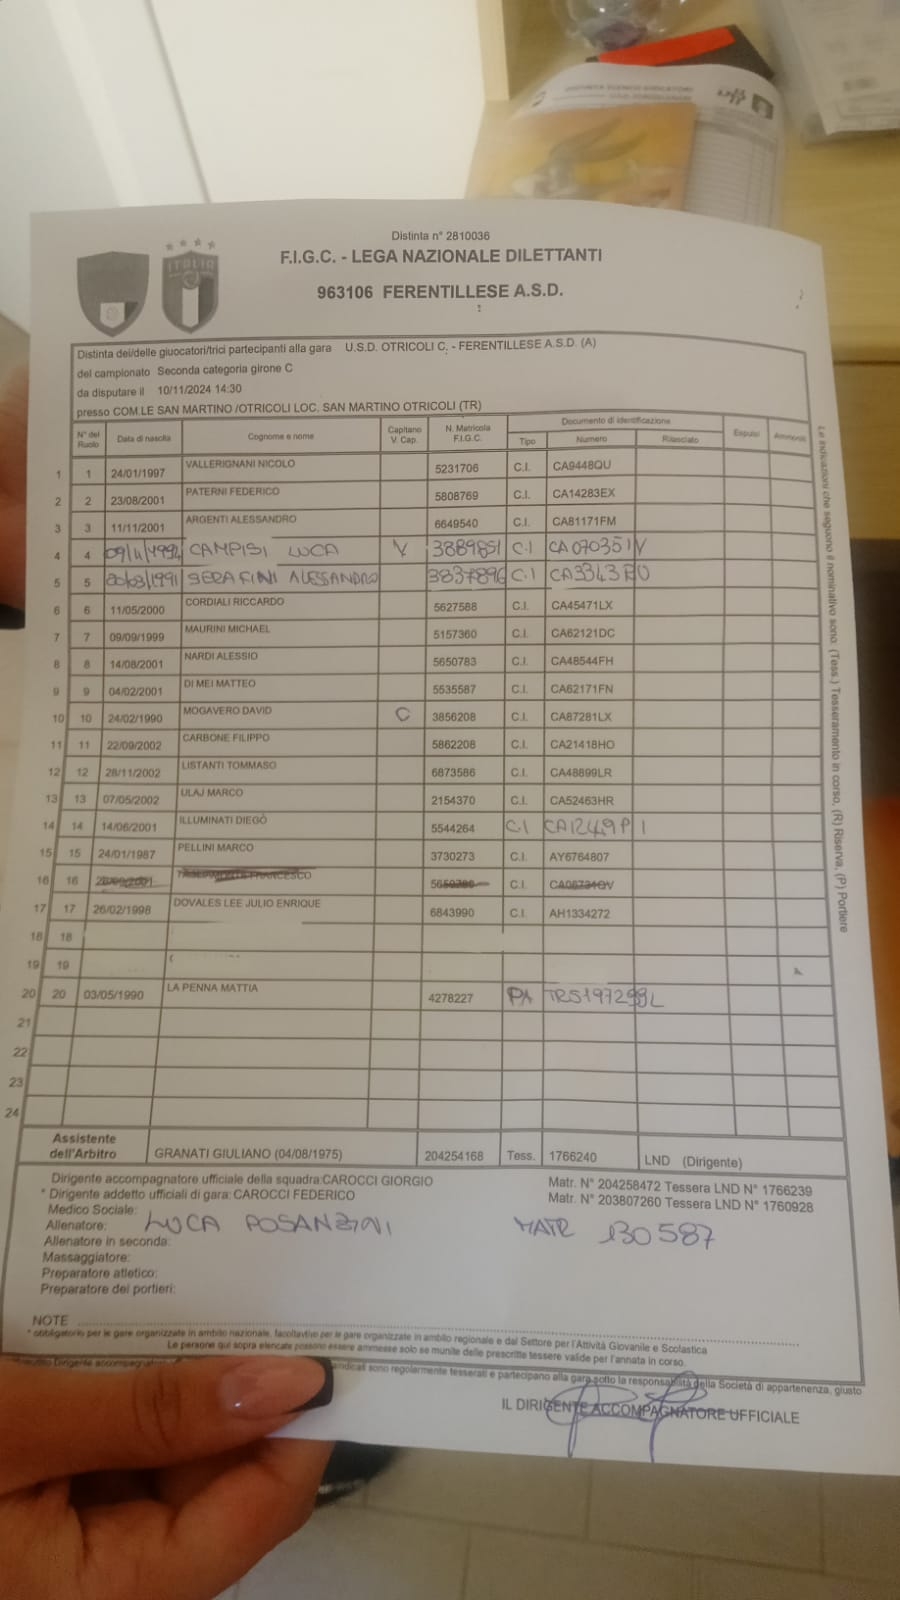 Distinta n° 2810036
F.I.G.C. - LEGA NAZIONALE DILETTANTI
963106 FERENTILLESE A.S.D.
ITALIA
Distinta dei/delle giuocatori/trici partecipanti alla gara U.S.D. OTRICOLI C. - FERENTILLESE A.S.D. (A)
del campionato Seconda categoria girone C
da disputare il 10/11/2024 14:30
presso COM.LE SAN MARTINO /OTRICOLI LOC. SAN MARTINO OTRICOLI (TR)
N° del Ruolo Data di nascita Cognome e nome Capitano V. Cap. N. Matricola F.I.G.C. Documento di identificazione Espulsi Ammoniti
Tipo Numero Rilasciato
1 1 24/01/1997 VALLERIGNANI NICOLO 5231706 C.I. CA9448QU
2 2 23/08/2001 PATERNI FEDERICO 5808769 C.I. CA14283EX
3 3 11/11/2001 ARGENTI ALESSANDRO 6649540 C.I. CA81171FM
4 4 CAMPISI LUCA V 3889851 C.I CA07035IV
5 5 20/03/1991 SERAFINI ALESSANDRO 3837896 C.I
6 6 11/05/2000 CORDIALI RICCARDO 5627588 C.I. CA45471LX
7 7 09/09/1999 MAURINI MICHAEL 5157360 C.I. CA62121DC
8 8 14/08/2001 NARDI ALESSIO 5650783 C.I. CA48544FH
9 9 04/02/2001 DI MEI MATTEO 5535587 C.I. CA62171FN
10 10 24/02/1990 MOGAVERO DAVID C 3856208 C.I. CA87281LX
11 11 22/09/2002 CARBONE FILIPPO 5862208 C.I. CA21418HO
12 12 28/11/2002 LISTANTI TOMMASO 6873586 C.I. CA48899LR
13 13 07/05/2002 ULAJ MARCO 2154370 C.I. CA52463HR
14 14 14/06/2001 ILLUMINATI DIEGO 5544264 C.I
15 15 24/01/1987 PELLINI MARCO 3730273 C.I. AY6764807
16 16 FRANCESCO C.I. CA08734QV
17 17 26/02/1998 DOVALES LEE JULIO ENRIQUE 6843990 C.I. AH1334272
18 18
19 19
20 20 03/05/1990 LA PENNA MATTIA 4278227 PA
21
22
23
24
Assistente dell'Arbitro GRANATI GIULIANO (04/08/1975) 204254168 Tess. 1766240 LND (Dirigente)
Dirigente accompagnatore ufficiale della squadra: CAROCCI GIORGIO Matr. N° 204258472 Tessera LND N° 1766239
* Dirigente addetto ufficiali di gara: CAROCCI FEDERICO Matr. N° 203807260 Tessera LND N° 1760928
Medico Sociale:
Allenatore: LUCA POSANZINI MATR 130587
Allenatore in seconda:
Massaggiatore:
Preparatore atletico:
Preparatore dei portieri:
NOTE
* obbligatorio per le gare organizzate in ambito nazionale, facoltativo per le gare organizzate in ambito regionale e dal Settore per l'Attività Giovanile e Scolastica
Le persone qui sopra elencate possono essere ammesse solo se munite delle prescritte tessere valide per l'annata in corso.
Dirigente indicati sono regolarmente tesserati e partecipano alla gara sotto la responsabilità della Società di appartenenza, giusto
IL DIRIGENTE ACCOMPAGNATORE UFFICIALE
Le indicazioni che seguono il nominativo sono: (Tess.) Tesseramento in corso, (R) Riserva, (P) Portiere